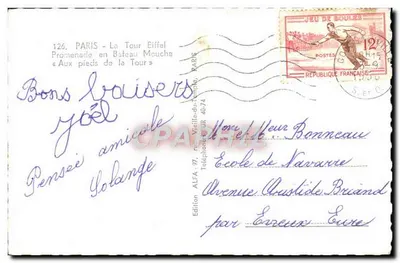 126. PARIS - La Tour Eiffel
Promenade en Bateau Mouche
« Aux pieds de la Tour »
Bons baisers
Joël
Pensée amicale
Solange
JEU DE BOULES
12F
POSTES
RÉPUBLIQUE FRANÇAISE
Edition ALFA
PARIS
CPARAMA
Mon et Meur Bonneau
Ecole de Navarre
Avenue Aristide Briand
par Evreux Eure